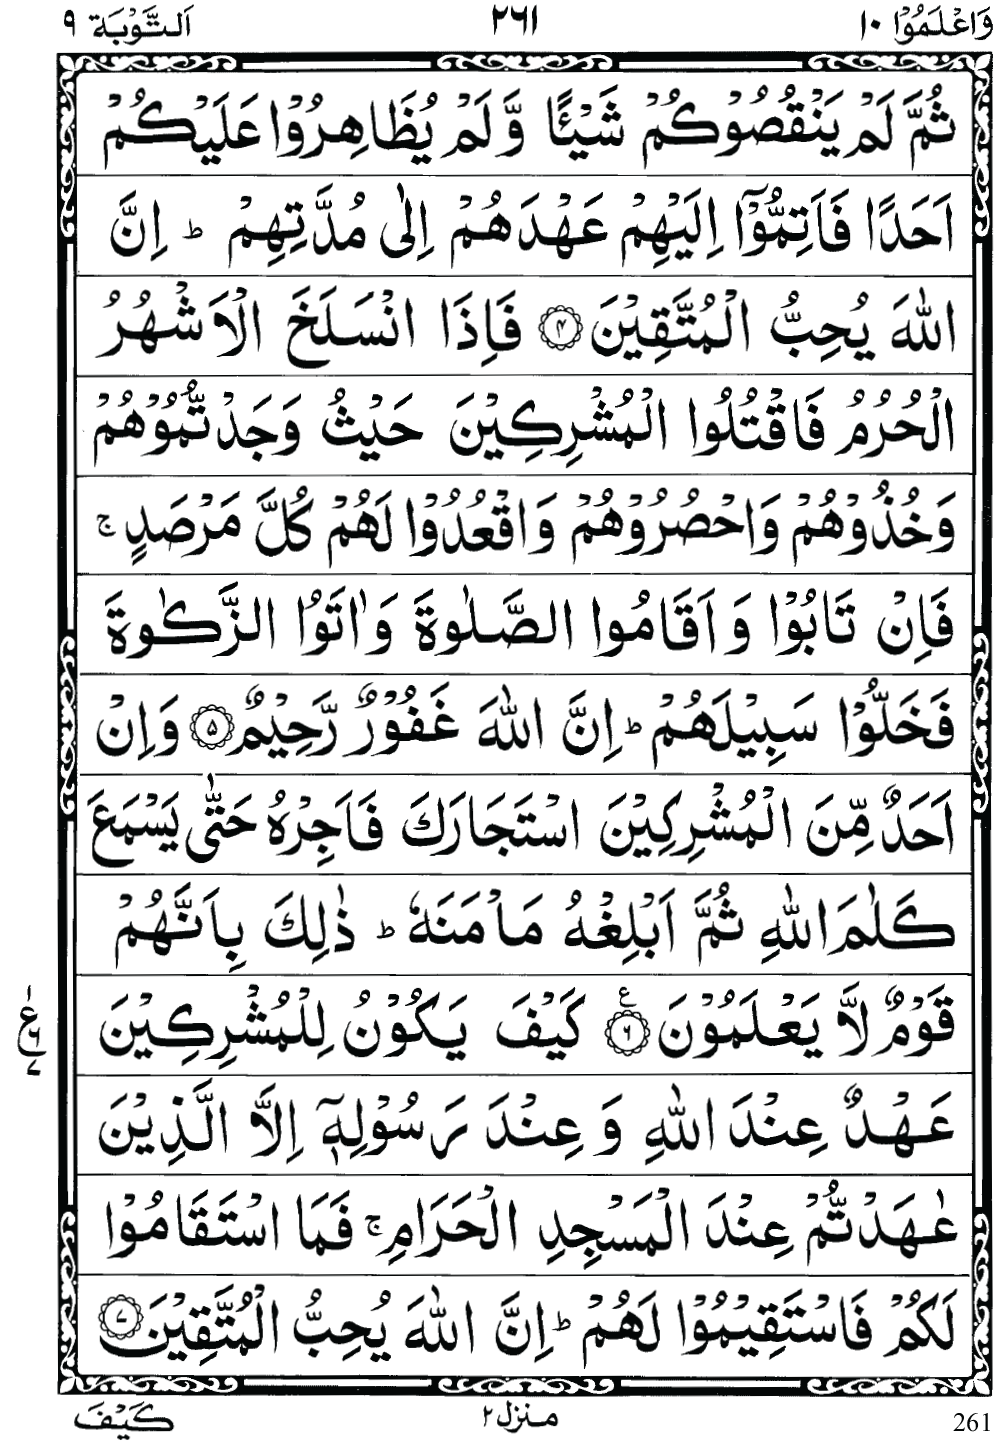 وَاعْلَمُوْا ١٠ ٢٦١ اَلتَّوْبَة ٩
ثُمَّ لَمْ يَنْقُصُوْكُمْ شَيْـًٔا وَّ لَمْ يُظَاهِرُوْا عَلَيْكُمْ
اَحَدًا فَاَتِمُّوْۤا اِلَيْهِمْ عَهْدَهُمْ اِلٰى مُدَّتِهِمْ ؕ اِنَّ
اللّٰهَ يُحِبُّ الْمُتَّقِيْنَ ﴿۴﴾ فَاِذَا انْسَلَخَ الْاَشْهُرُ
الْحُرُمُ فَاقْتُلُوا الْمُشْرِكِيْنَ حَيْثُ وَجَدْتُّمُوْهُمْ
وَخُذُوْهُمْ وَاحْصُرُوْهُمْ وَاقْعُدُوْا لَهُمْ كُلَّ مَرْصَدٍ ۚ
فَاِنْ تَابُوْا وَ اَقَامُوا الصَّلٰوةَ وَ اٰتَوُا الزَّكٰوةَ
فَخَلُّوْا سَبِيْلَهُمْ ؕ اِنَّ اللّٰهَ غَفُوْرٌ رَّحِيْمٌ ﴿۵﴾ وَاِنْ
اَحَدٌ مِّنَ الْمُشْرِكِيْنَ اسْتَجَارَكَ فَاَجِرْهُ حَتّٰى يَسْمَعَ
كَلٰمَ اللّٰهِ ثُمَّ اَبْلِغْهُ مَاْمَنَهٗ ؕ ذٰلِكَ بِاَنَّهُمْ
قَوْمٌ لَّا يَعْلَمُوْنَ ﴿۶﴾ ع كَيْفَ يَكُوْنُ لِلْمُشْرِكِيْنَ
١ ع ۶ ٧
عَهْدٌ عِنْدَ اللّٰهِ وَ عِنْدَ رَسُوْلِهٖۤ اِلَّا الَّذِيْنَ
عٰهَدْتُّمْ عِنْدَ الْمَسْجِدِ الْحَرَامِ ۚ فَمَا اسْتَقَامُوْا
لَكُمْ فَاسْتَقِيْمُوْا لَهُمْ ؕ اِنَّ اللّٰهَ يُحِبُّ الْمُتَّقِيْنَ ﴿۷﴾
كَيْفَ منزل ٢ 261